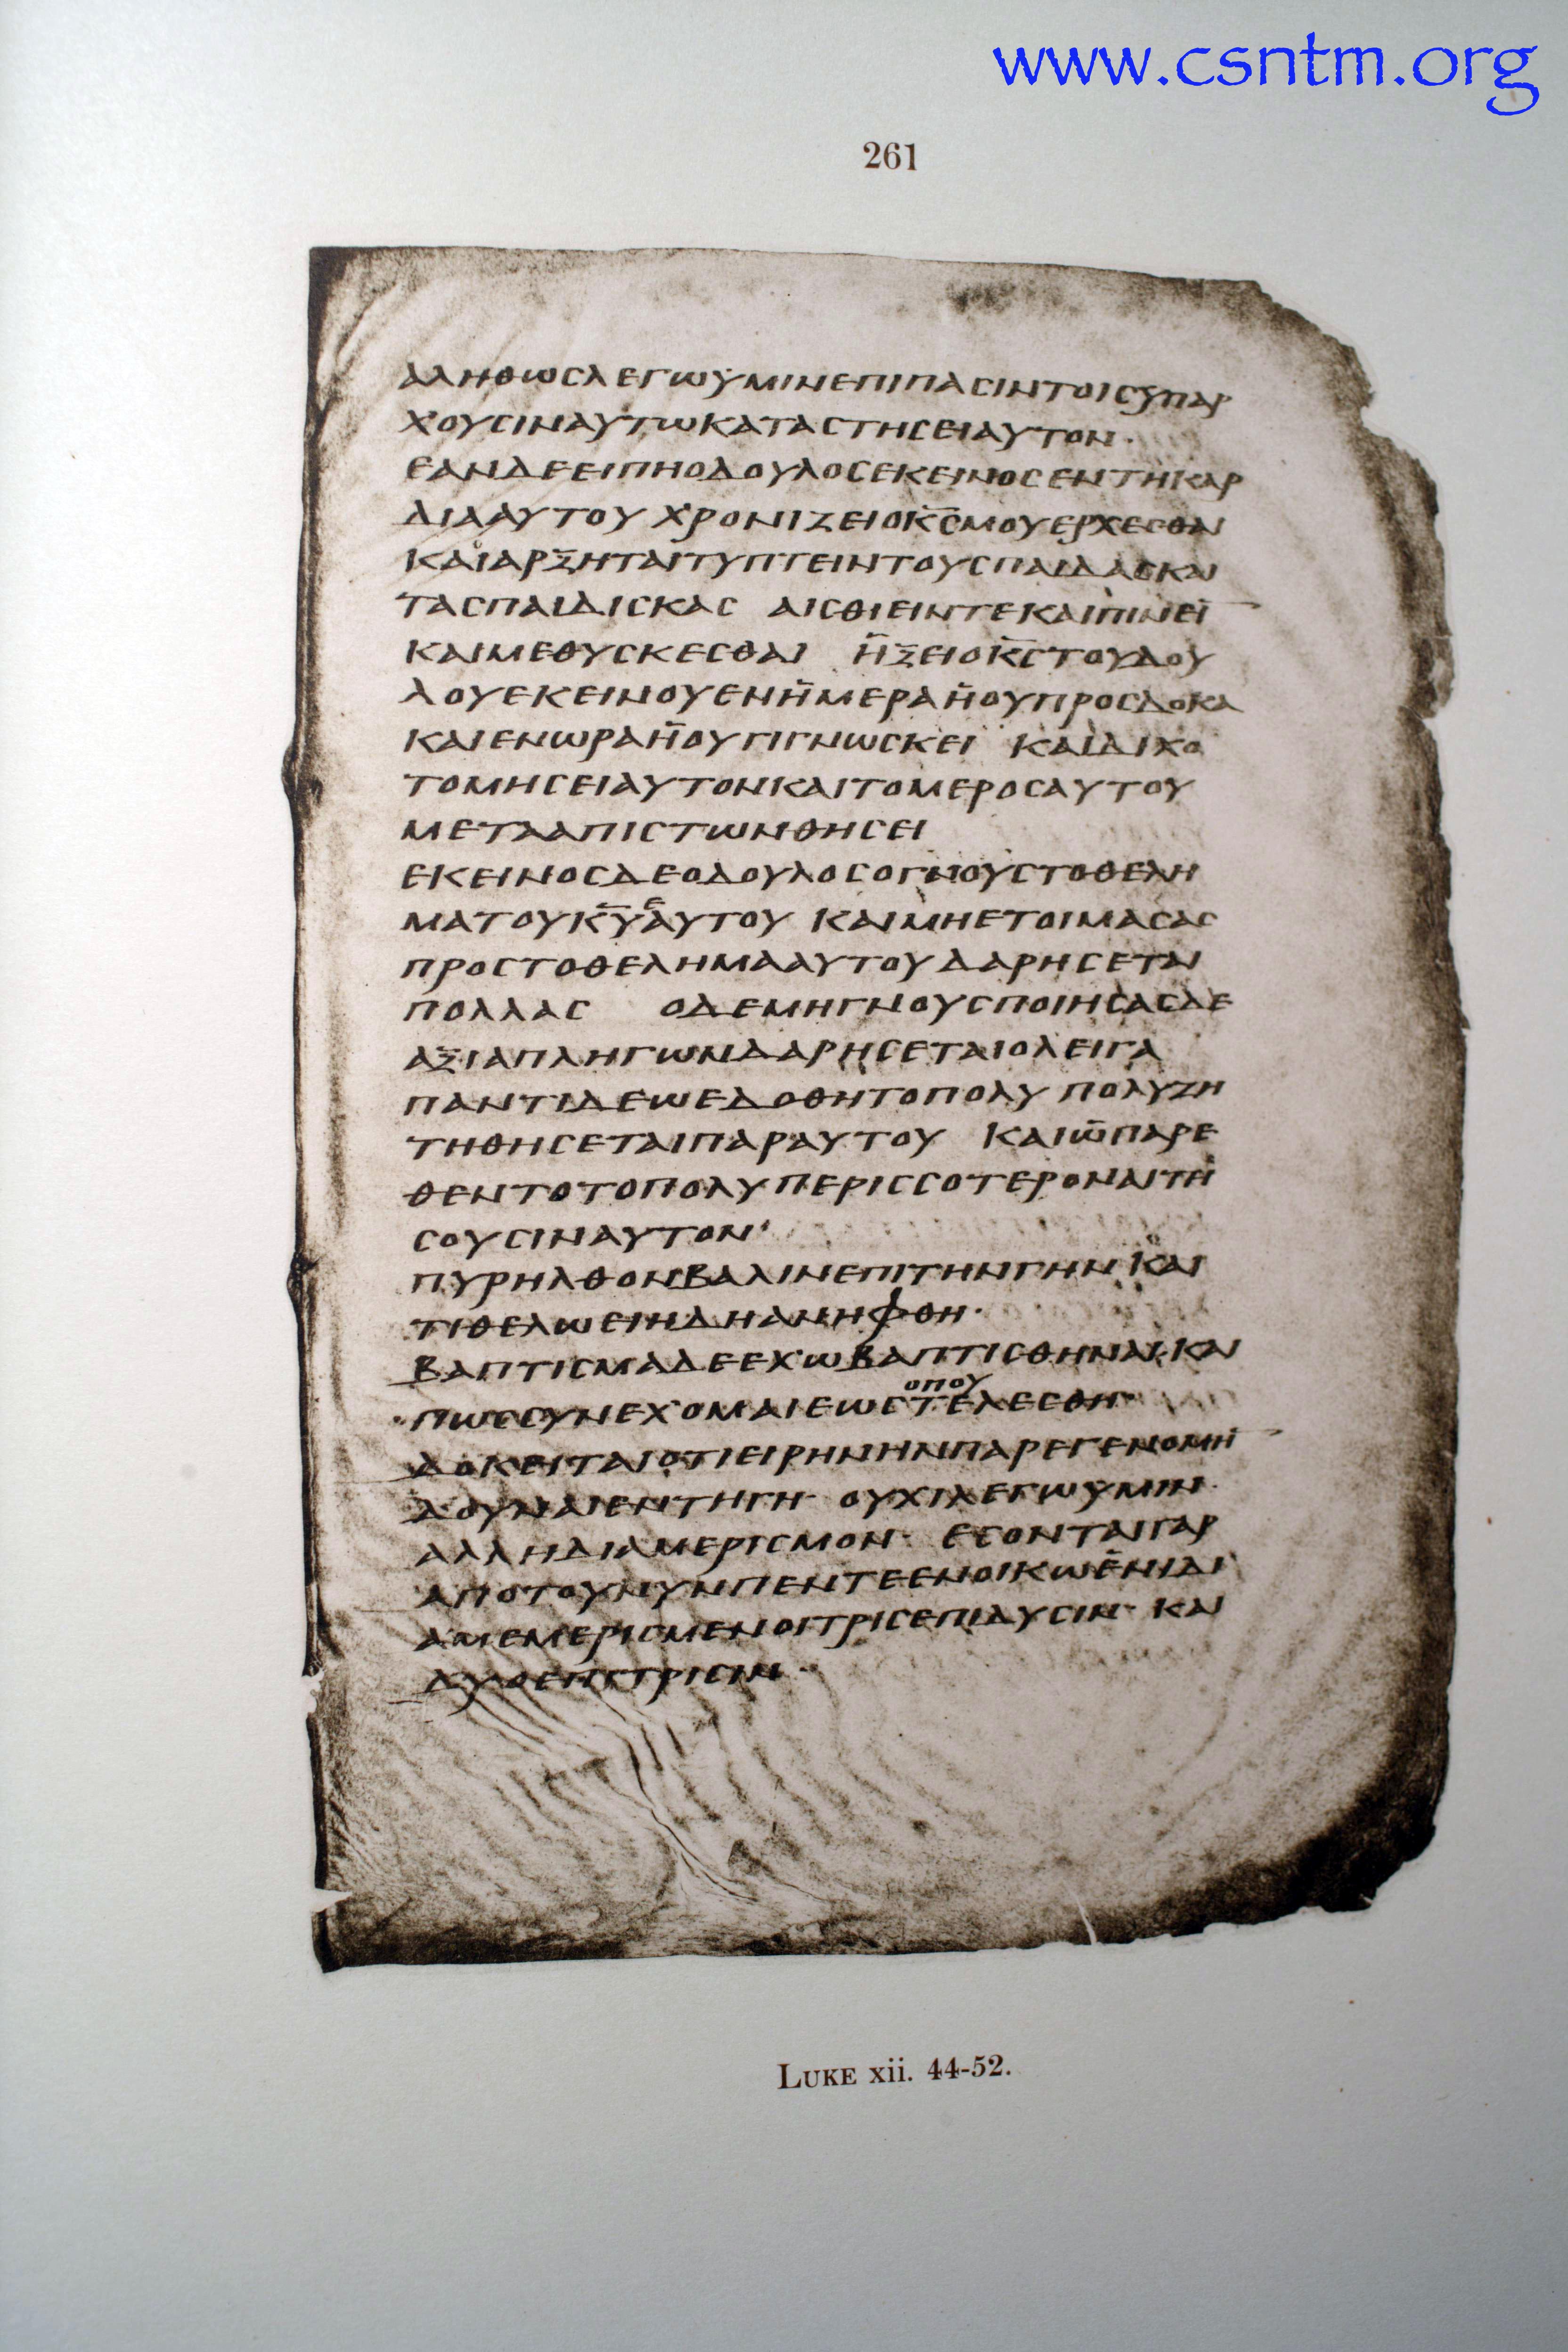 www.csntm.org
261
ΑΛΗΘΩСΛΕΓΩΫΜΙΝΕΠΙΠΑСΙΝΤΟΙСΫΠΑΡ
ΧΟΥСΙΝΑΥΤΩΚΑΤΑСΤΗСΕΙΑΥΤΟΝ·
ΕΑΝΔΕΕΙΠΗΟΔΟΥΛΟСΕΚΕΙΝΟСΕΝΤΗΚΑΡ
ΔΙΑΑΥΤΟΥ ΧΡΟΝΙΖΕΙΟΚ̅С̅ΜΟΥΕΡΧΕСΘΑΙ
ΚΑΙΑΡΞΗΤΑΙΤΥΠΤΕΙΝΤΟΥСΠΑΙΔΑСΚΑΙ
ΤΑСΠΑΙΔΙСΚΑС ΑΙСΘΙΕΙΝΤΕΚΑΙΠΙΝΕΙ̅
ΚΑΙΜΕΘΥСΚΕСΘΑΙ ΗΞΕΙΟΚ̅С̅ΤΟΥΔΟΥ
ΛΟΥΕΚΕΙΝΟΥΕΝΗΜΕΡΑΗΟΥΠΡΟСΔΟΚΑ
ΚΑΙΕΝΩΡΑΗΟΥΓΙΓΝΩСΚΕΙ ΚΑΙΔΙΧΟ
ΤΟΜΗСΕΙΑΥΤΟΝΚΑΙΤΟΜΕΡΟСΑΥΤΟΥ
ΜΕΤΑΑΠΙСΤΩΝΘΗСΕΙ
ΕΚΕΙΝΟСΔΕΟΔΟΥΛΟСΟΓΝΟΥСΤΟΘΕΛΗ
ΜΑΤΟΥΚ̅Υ̅ΕΑΥΤΟΥ ΚΑΙΜΗΕΤΟΙΜΑСΑС
ΠΡΟСΤΟΘΕΛΗΜΑΑΥΤΟΥΔΑΡΗСΕΤΑΙ
ΠΟΛΛΑС ΟΔΕΜΗΓΝΟΥСΠΟΙΗСΑСΔΕ
ΑΞΙΑΠΛΗΓΩΝΔΑΡΗСΕΤΑΙΟΛΕΙΓΑ
ΠΑΝΤΙΔΕΩΕΔΟΘΗΤΟΠΟΛΥ ΠΟΛΥΖΗ
ΤΗΘΗСΕΤΑΙΠΑΡΑΥΤΟΥ ΚΑΙΩΠΑΡΕ
ΘΕΝΤΟΤΟΠΟΛΥΠΕΡΙССΟΤΕΡΟΝΑΙΤΗ
СΟΥСΙΝΑΥΤΟΝ·
ΠΥΡΗΛΘΟΝΒΑΛΙΝΕΠΙΤΗΝΓΗΝΚΑΙ
ΤΙΘΕΛΩΕΙΗΔΗΑΝΗΦΘΗ·
ΒΑΠΤΙСΜΑΔΕΕΧΩΒΑΠΤΙСΘΗΝΑΙ·ΚΑΙ
ΠΩССΥΝΕΧΟΜΑΙΕΩСΟΠΟΥΤΕΛΕСΘΗ·
ΔΟΚΕΙΤΑΙΟΤΙΕΙΡΗΝΗΝΠΑΡΕΓΕΝΟΜΗ̅
ΔΟΥΝΑΙΕΝΤΗΓΗ· ΟΥΧΙΛΕΓΩΫΜΙΝ·
ΑΛΛΗΔΙΑΜΕΡΙСΜΟΝ· ΕСΟΝΤΑΙΓΑΡ
ΑΠΟΤΟΥΝΥΝΠΕΝΤΕΕΝΟΙΚΩΕΝΙΔΙ
ΑΜΕΜΕΡΙСΜΕΝΟΙΤΡΙСΕΠΙΔΥСΙΝ· ΚΑΙ
ΔΥΟΕΠΙΤΡΙСΙΝ·
LUKE xii. 44-52.